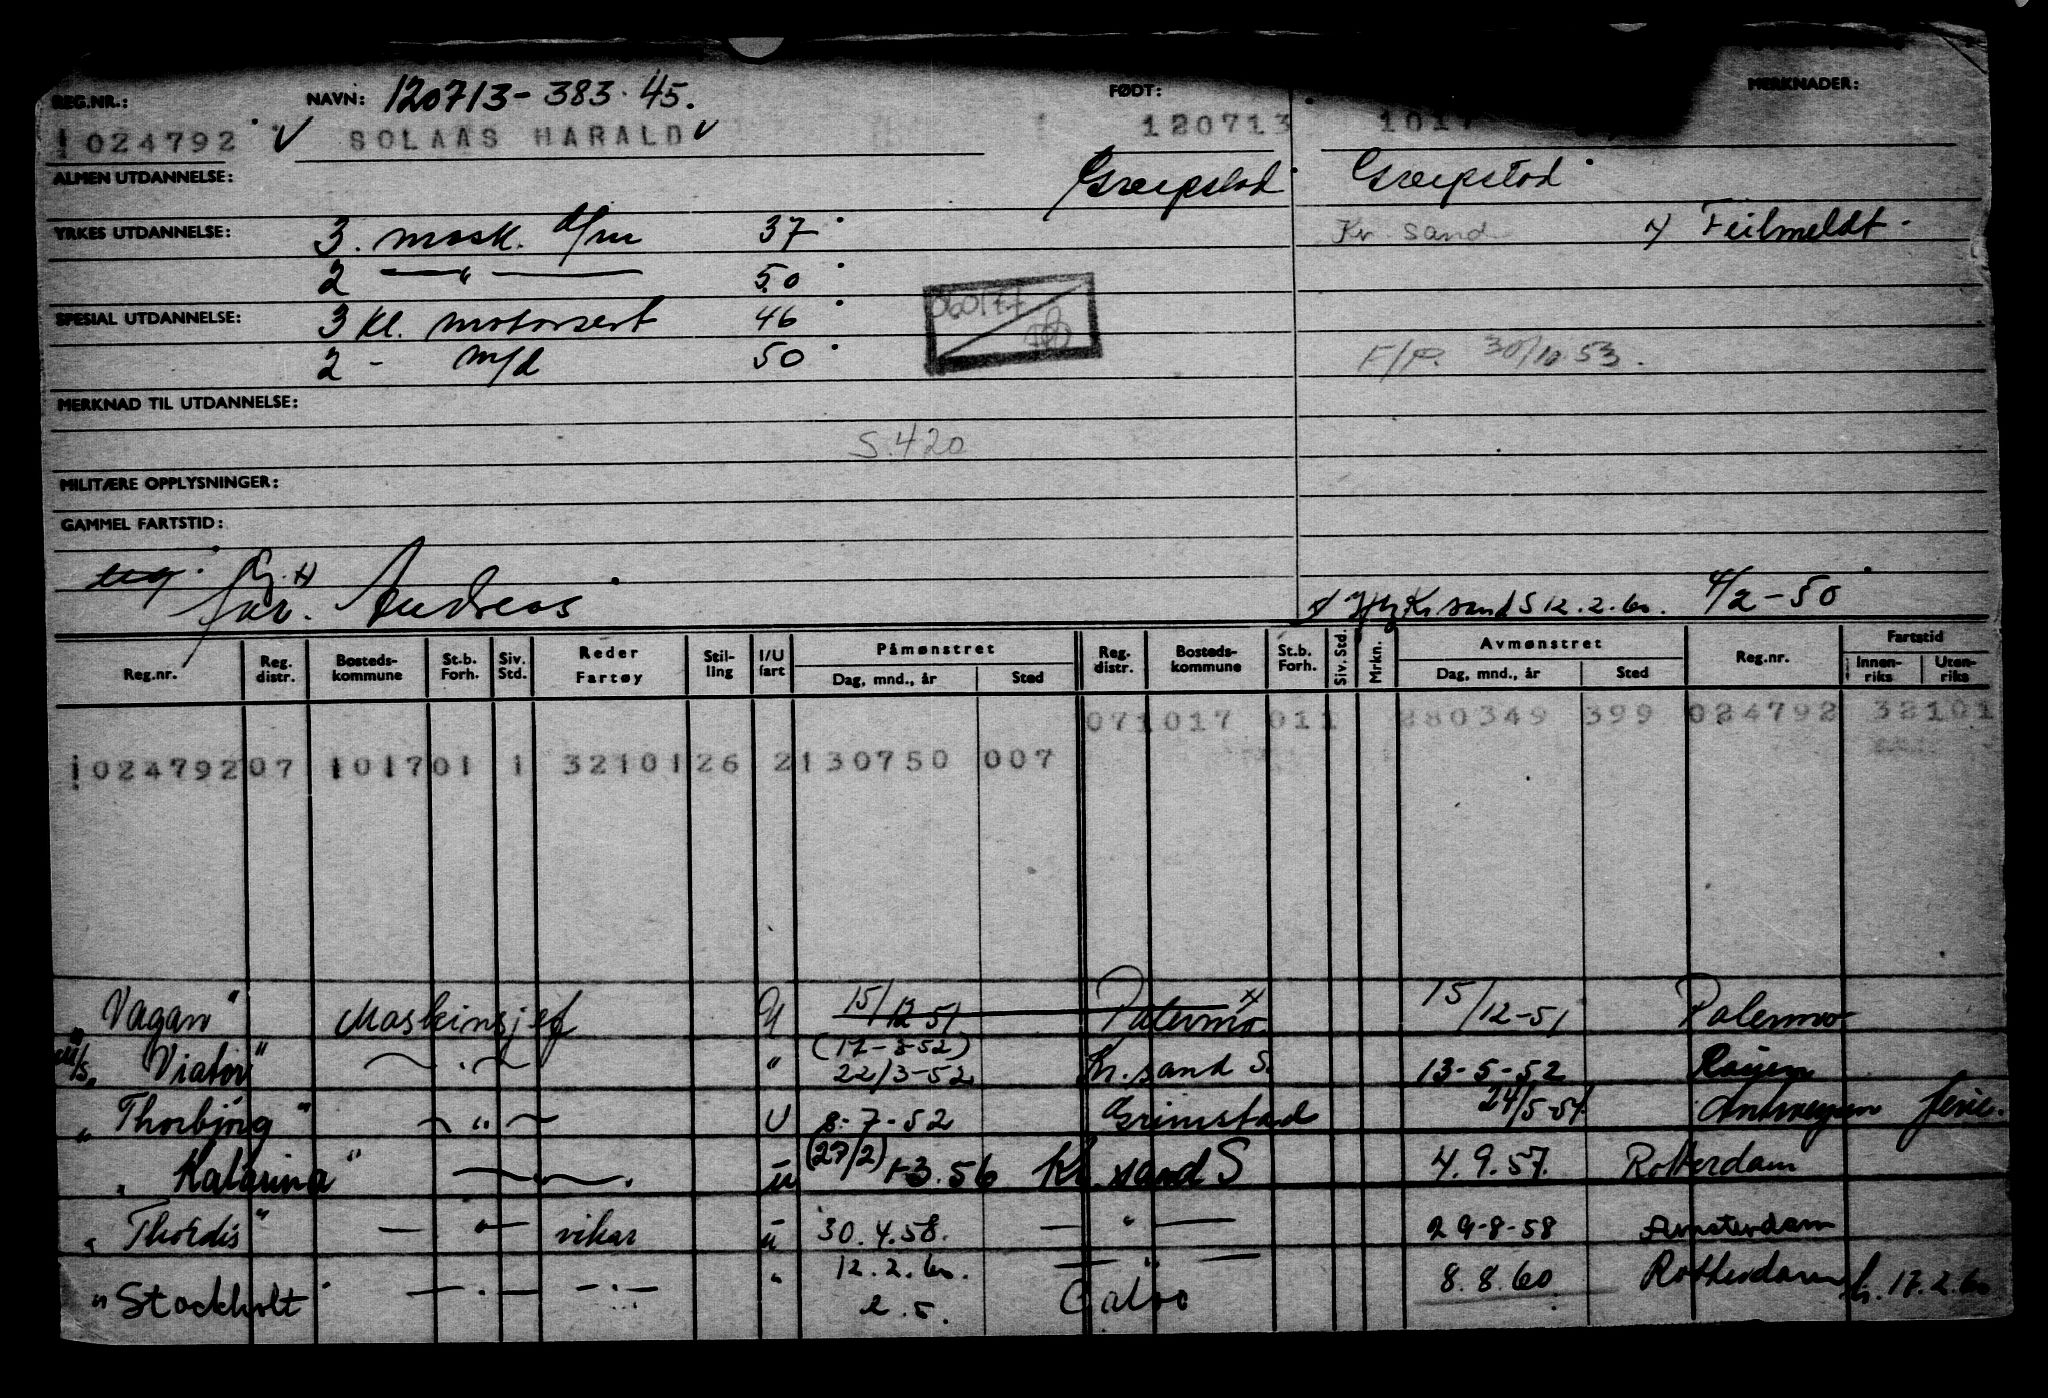 REG.NR.: NAVN: 120713-383.45. FØDT: MERKNADER:
1024792 V SOLAAS HARALD V 120713 1017
ALMEN UTDANNELSE: Greipstad Greipstad
YRKES UTDANNELSE: 3. mask. d/m 37 Kr. sand Feilmeldt.
2 — " — 50
SPESIAL UTDANNELSE: 3 kl. motorsert 46 060177
2 - m/d 50 F/P. 30/10 53.
MERKNAD TIL UTDANNELSE:
S.420
MILITÆRE OPPLYSNINGER:
GAMMEL FARTSTID:
ug. Gj. x)
far. Andreas x Hy Kr sand S 12.2.60. 4/2-50
Reg.nr. Reg. distr. Bosteds-kommune St.b. Forh. Siv. Std. Reder Fartøy Stil-ling I/U fart Påmønstret Dag, mnd., år Sted Reg. distr. Bosteds-kommune St.b. Forh. Siv. Std. Mrkn. Avmønstret Dag, mnd., år Sted Reg.nr. Fartstid Innen-riks Uten-riks
071017 011 280349 399 024792 32101
102479207 101701 1 3210126 2130750 007
"Vagan" Maskinsjef U 15/12 51 Palermo x 15/12-51 Palermo
(17-3-52)
m/s "Viator" — " — " 22/3-52 Kr. sand S. 13-5-52 Rouen
"Thorbjørg" — " — U 8-7-52 Grimstad 24/5-54 Antwerpen ferie.
"Katarina" — " — u (27/2) 1-3.56 Kr. sand S 4.9.57. Rotterdam
"Thordis" — " — vikar u 30.4.58. — " — 29-8-58 Amsterdam
12.2.60. — " —
"Stockholt" — " — — " — " 2.5. 8.8.60. Rotterdam h. 17.2.60